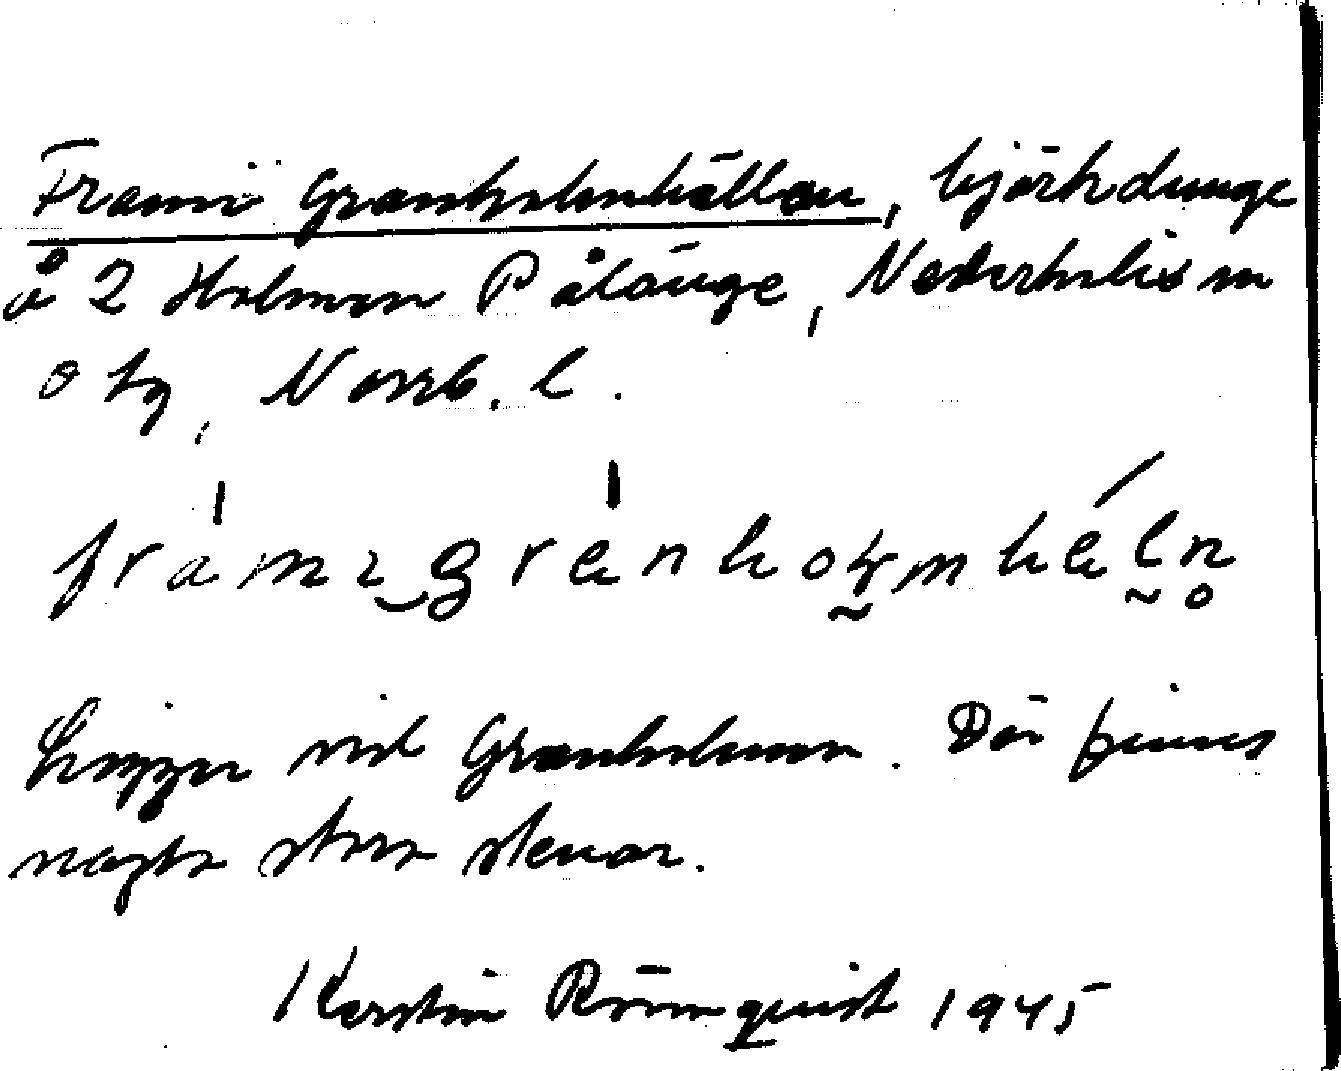 Frami Granholmhällan, björkdunge
å 2 Holmen Pålänge, Nederkalix sn
o tg, Norrb. l.
Ligger vid Granholmen. Där finns
några stora stenar.
Kerstin Rönnquist 1945